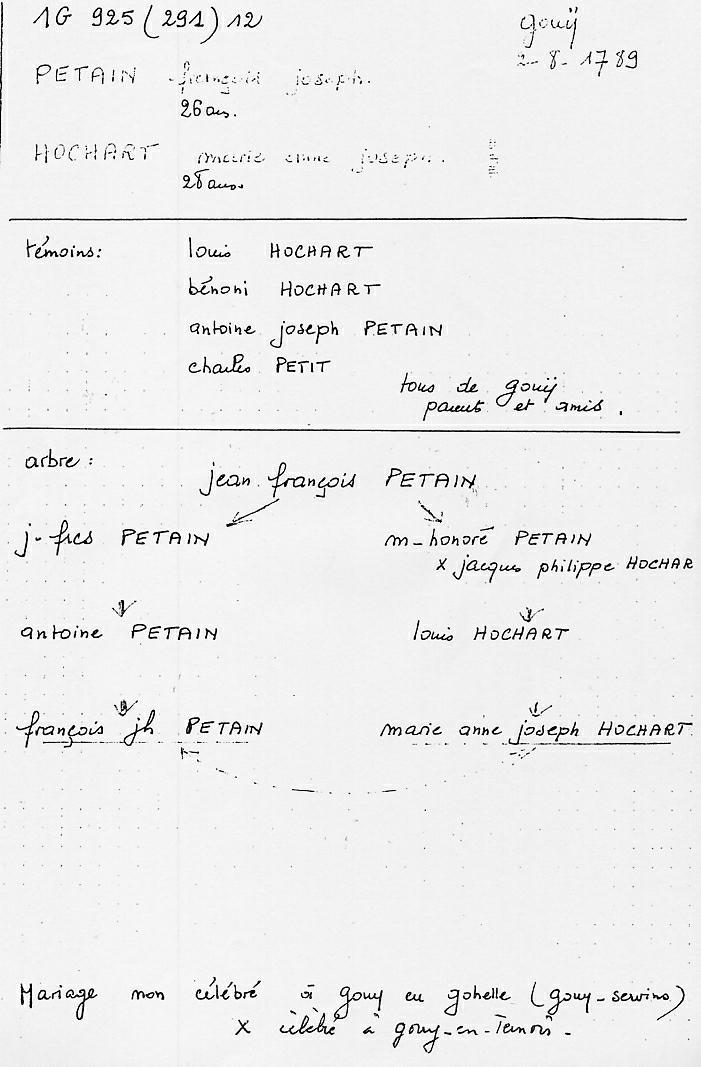 1G 925 (291) 12
gouÿ
2-8-1789
PETAIN françois joseph.
26 ans.
HOCHART marie anne joseph.
28 ans.
témoins: louis HOCHART
bénoni HOCHART
antoine joseph PETAIN
charles PETIT
tous de gouÿ
parents et amis.
arbre: jean françois PETAIN
j-frcs PETAIN m-honoré PETAIN
x jacques philippe HOCHAR
antoine PETAIN louis HOCHART
françois jh PETAIN marie anne joseph HOCHART
Mariage non célébré à gouy en gohelle (gouy-servins)
X célébré à gouy-en-Ternois-